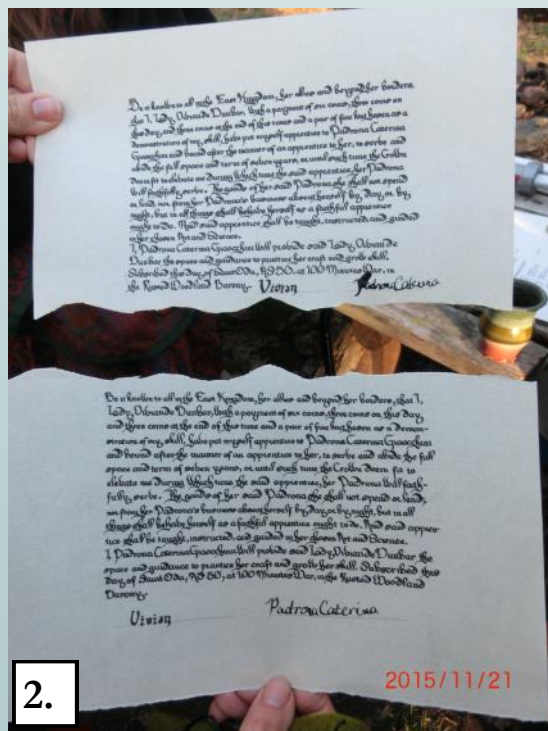 Be it known to all in the East Kingdom, her allies and beyond her borders
that I, Lady Viviande Dunbar, with a payment of six coins, three coins on
this day, and three coins at the end of this time and a pair of fine hosen as a
demonstration of my skill, have put myself apprentice to Padrona Caterina
Gioacchini and bound after the manner of an apprentice to her, to serve and
abide the full space and term of seven years, or until such time the
deem fit to elevate me during which time the said apprentice, her Padrona
will faithfully serve. The goods of her said Padrona she shall not spend
or lend, nor from her Padrona's business absent herself by day, or by
night, but in all things shall behave herself as a faithful apprentice
ought to do. And said apprentice shall be taught, instructed, and guided
in her chosen Art and Science.
I, Padrona Caterina Gioacchini will provide said Lady Viviande
Dunbar the space and guidance to practice her craft and grow her skill.
Subscribed this day, of Saint Oda, AS 50, at 100 Minutes War, in
the Rusted Woodland Barony. Vivian Padrona Caterina
Be it known to all in the East Kingdom, her allies and beyond her borders, that I,
Lady Viviande Dunbar, with a payment of six coins, three coins on this day,
and three coins at the end of this time and a pair of fine hosen as a demon-
stration of my skill, have put myself apprentice to Padrona Caterina Gioacchini
and bound after the manner of an apprentice to her, to serve and abide the full
space and term of seven years, or until such time the deem fit to
elevate me during which time the said apprentice, her Padrona will faith-
fully serve. The goods of her said Padrona she shall not spend or lend,
nor from her Padrona's business absent herself by day, or by night, but in all
things shall behave herself as a faithful apprentice ought to do. And said appren-
tice shall be taught, instructed, and guided in her chosen Art and Science.
I, Padrona Caterina Gioacchini will provide said Lady Viviande Dunbar the
space and guidance to practice her craft and grow her skill. Subscribed this
day, of Saint Oda, AS 50, at 100 Minutes War, in the Rusted Woodland
Barony.
Vivian Padrona Caterina
2015/11/21
2.